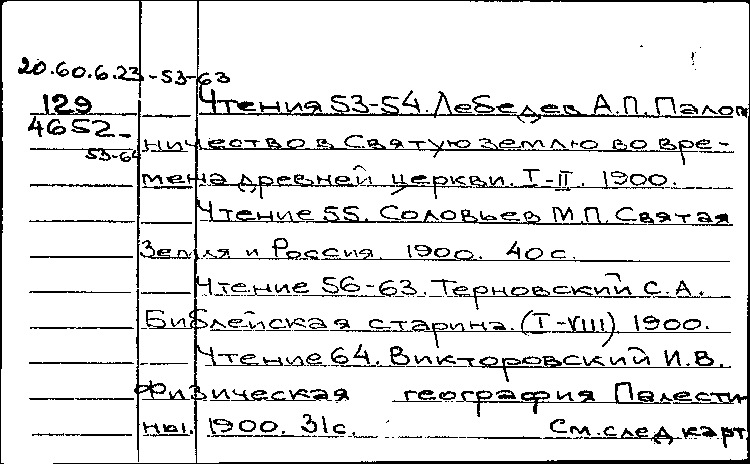 20.60.6.23-53-63
129 Чтения 53-54. Лебедев А.П. Палом
4652-
53-64 ничество в Святую землю во вре-
мена древней церкви. I-II. 1900.
Чтение 55. Соловьев М.П. Святая
Земля и Россия. 1900. 40 с.
Чтение 56-63. Терновский С.А.
Библейская старина. (I-VIII) 1900.
Чтение 64. Викторовский И.В.
Физическая география Палести
ны. 1900. 31с. См. след карт